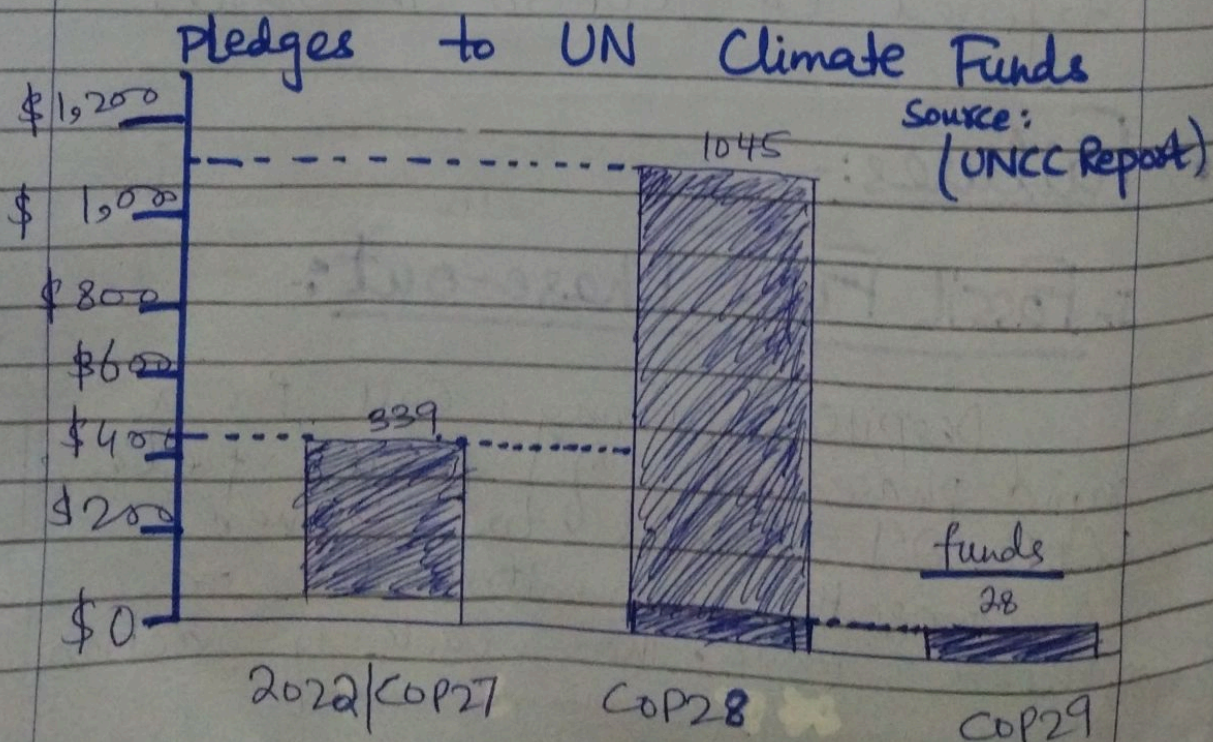 Pledges to UN Climate Funds
Source:
(UNCC Report)
$1,200
$ 1,000
$800
$600
$400
$200
$0
339
1045
funds
28
2022/COP27
COP28
COP29